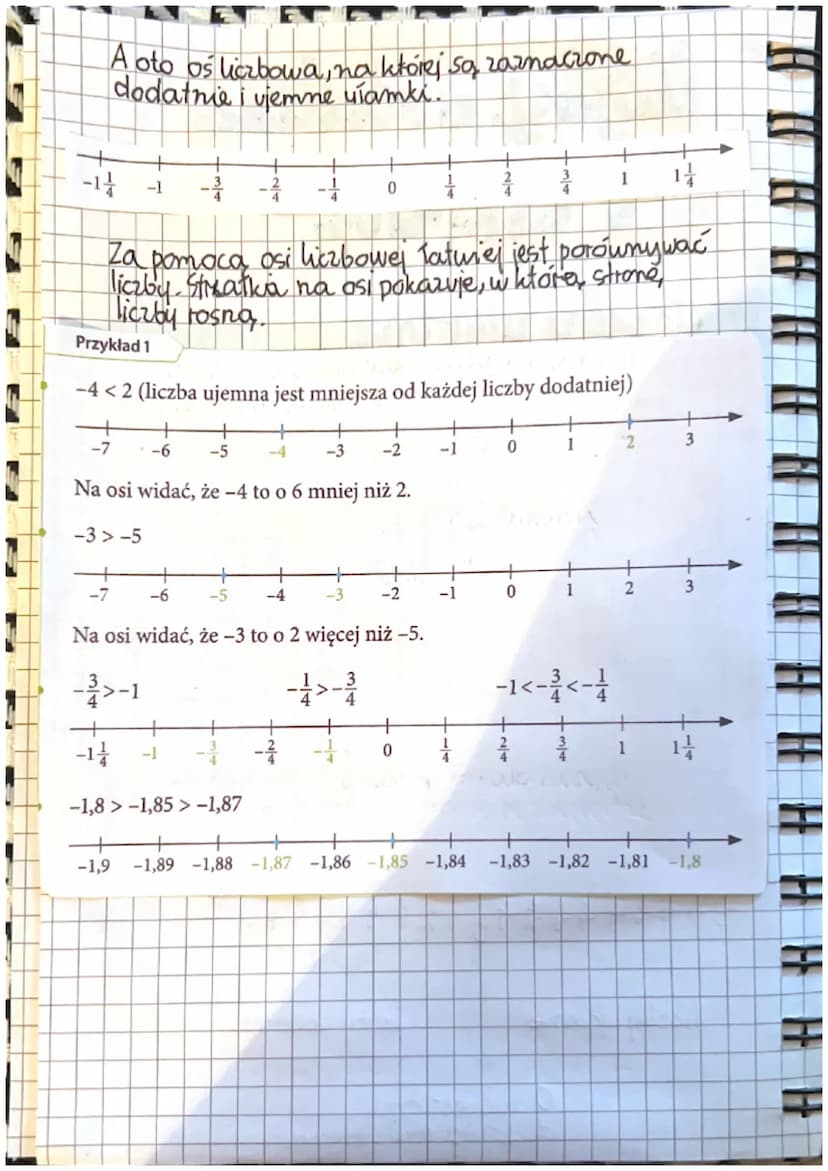 A oto oś liczbowa, na której są zaznaczone
dodatnie i ujemne ułamki.
-1 1/4 -1 -3/4 -2/4 -1/4 0 1/4 2/4 3/4 1 1 1/4
Za pomocą osi liczbowej łatwiej jest porównywać
liczby. Strzałka na osi pokazuje, w którą stronę,
liczby rosną.
Przykład 1
−4 < 2 (liczba ujemna jest mniejsza od każdej liczby dodatniej)
−7 −6 −5 −4 −3 −2 −1 0 1 2 3
Na osi widać, że −4 to o 6 mniej niż 2.
−3 > −5
−7 −6 −5 −4 −3 −2 −1 0 1 2 3
Na osi widać, że −3 to o 2 więcej niż −5.
−3/4 > −1 −1/4 > −3/4 −1 < −3/4 < −1/4
−1 1/4 −1 −3/4 −2/4 −1/4 0 1/4 2/4 3/4 1 1 1/4
−1,8 > −1,85 > −1,87
−1,9 −1,89 −1,88 −1,87 −1,86 −1,85 −1,84 −1,83 −1,82 −1,81 −1,8